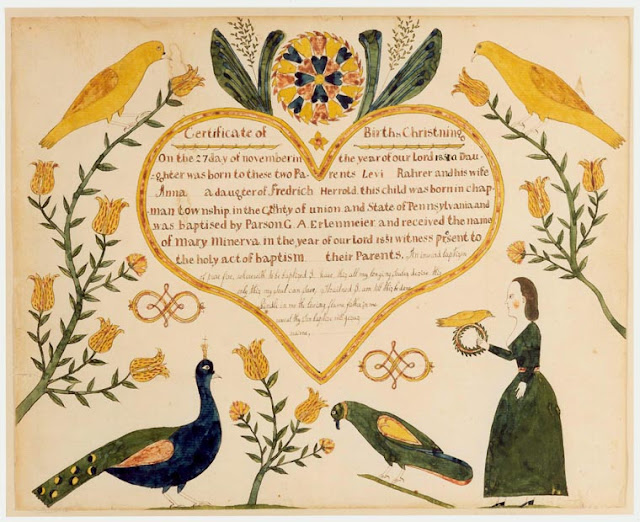 Certificate of Birth & Christning
On the 27 day of november in the year of our Lord 1851 a Dau=
ghter was born to these two Parents Levi Rahrer and his wife
Anna a daugter of Fredrich Herrold, this child was born in chap=
man township, in the County of union and State of Pennsylvania and
was baptised by Parson G A Erlenmeier, and received the name
of Mary Minerva in the year of our Lord 1851 witness present to
the holy act of baptism their Parents. An inward baptism
of pure fire, wherewith to be baptized I have, tis all my longing souls desire, this
only this my soul can save,